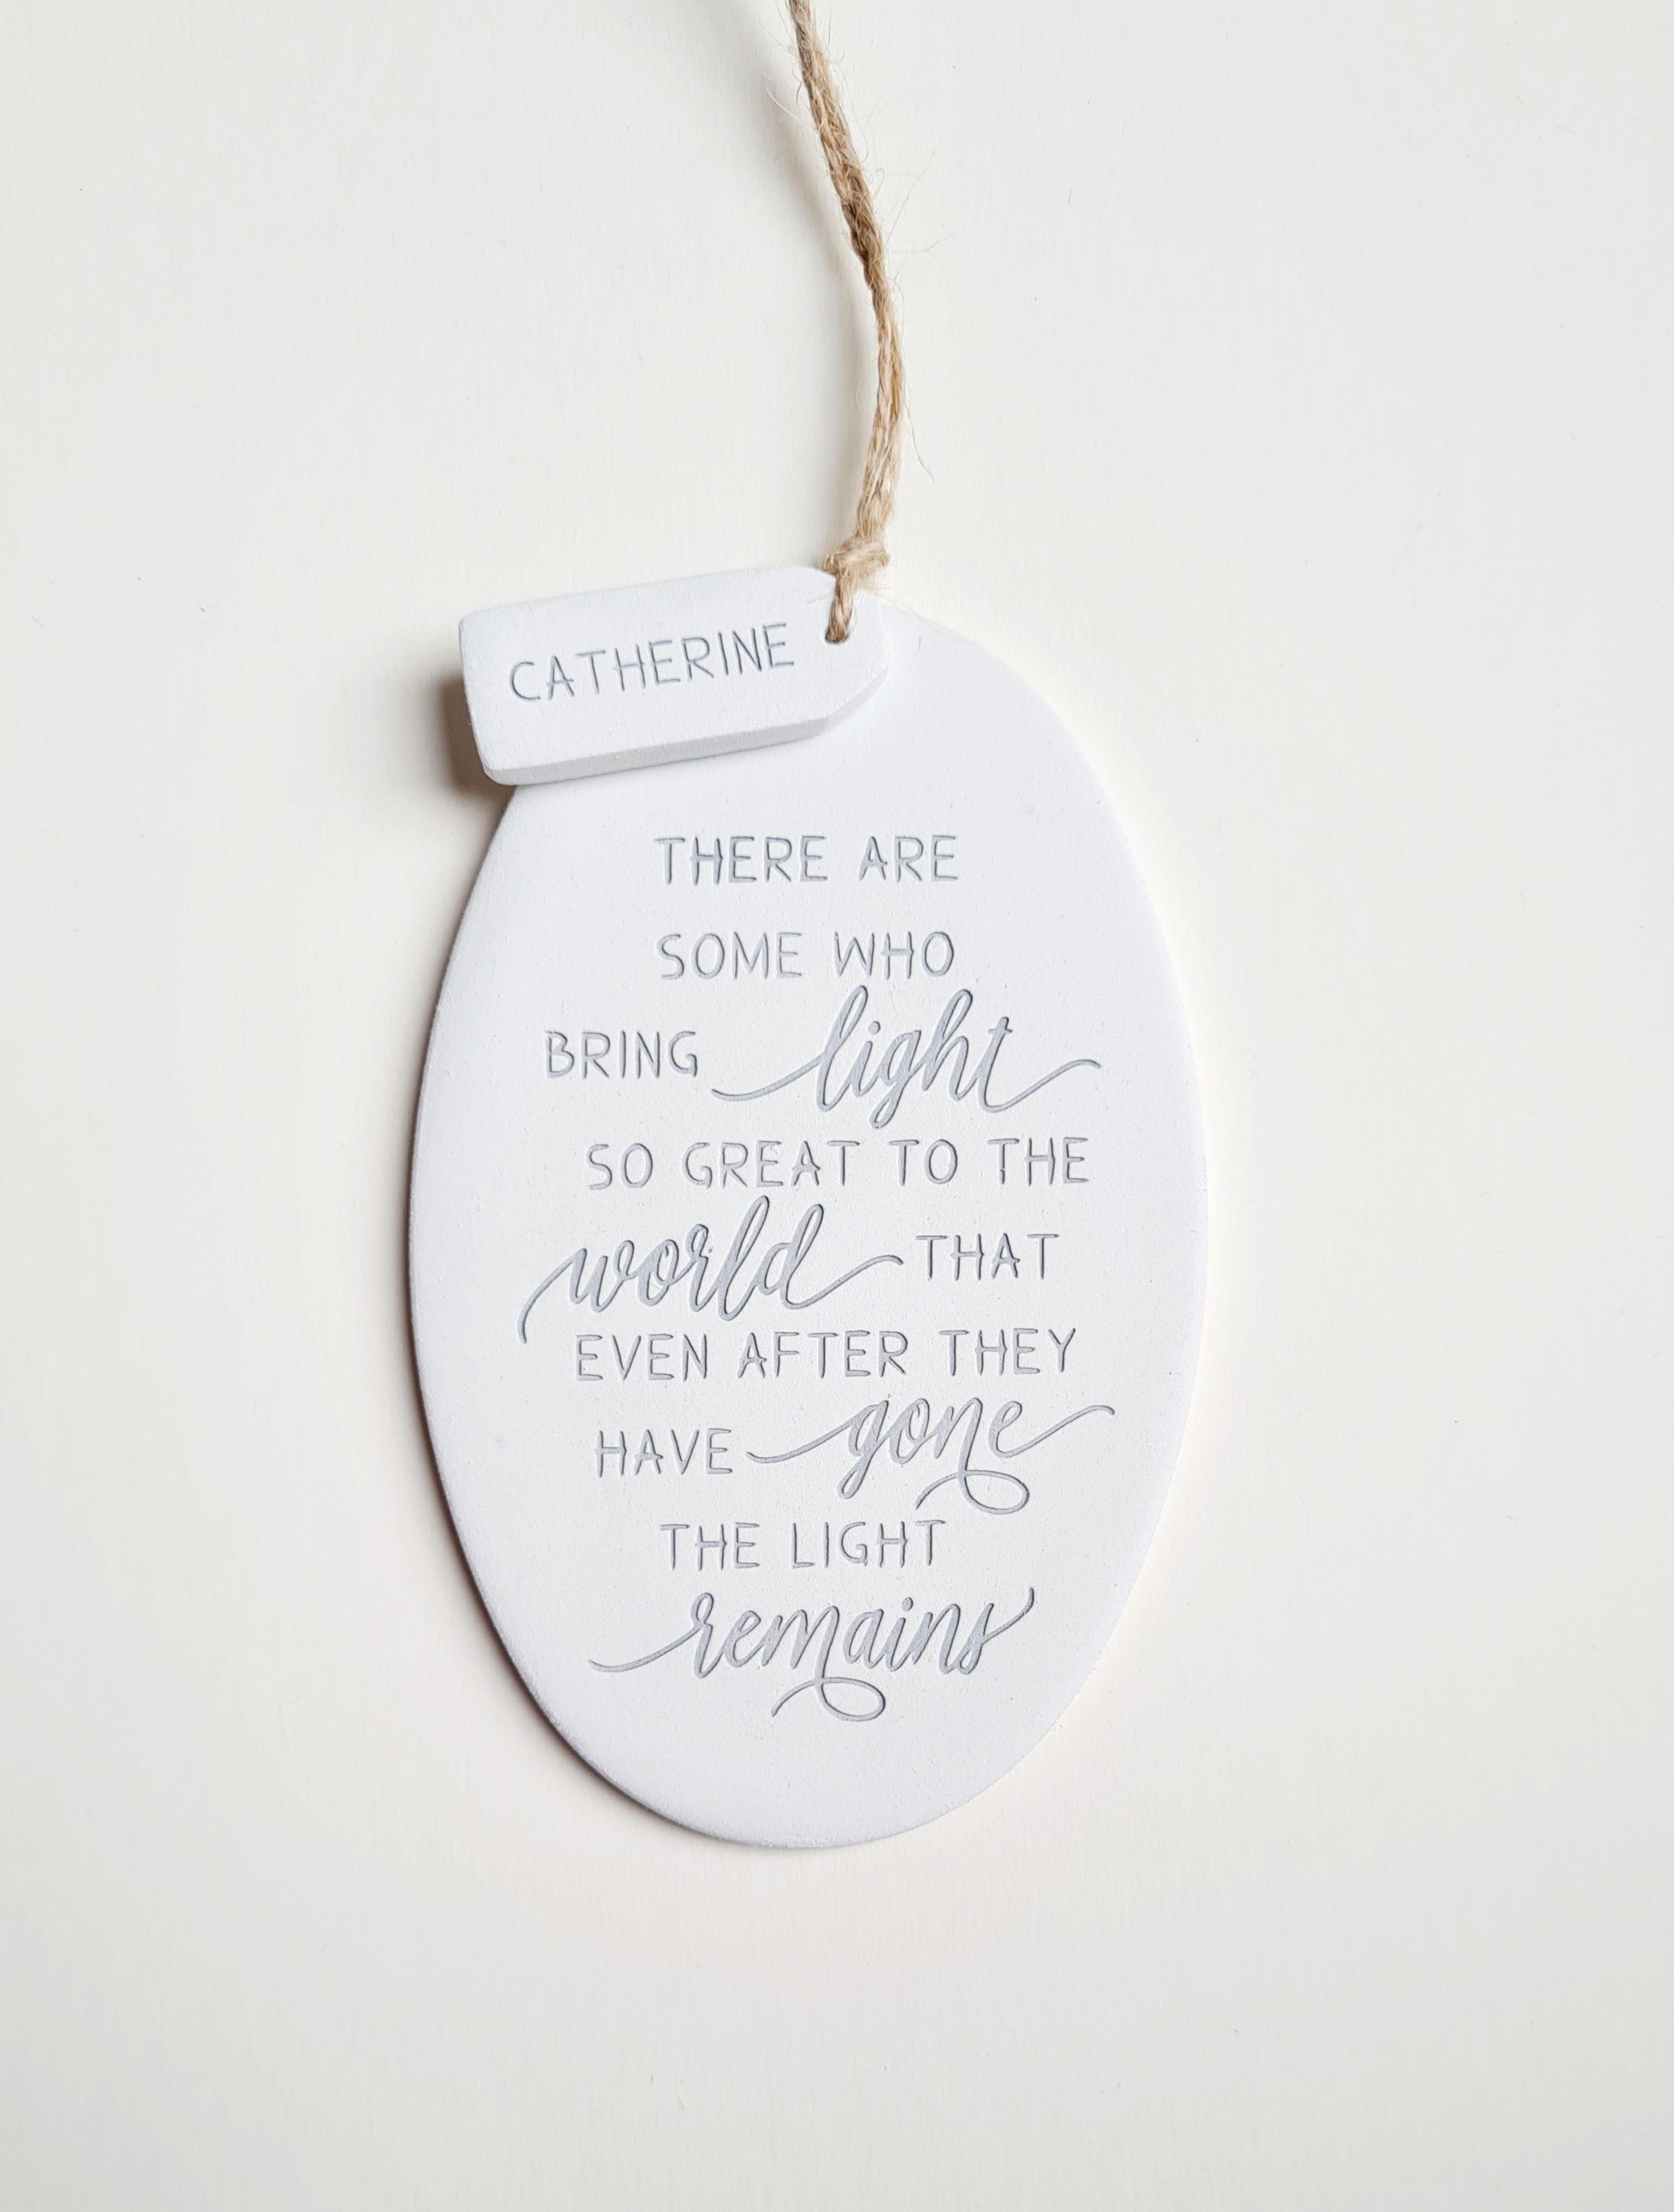 CATHERINE
THERE ARE
SOME WHO
BRING light
SO GREAT TO THE
world THAT
EVEN AFTER THEY
HAVE gone
THE LIGHT
remains